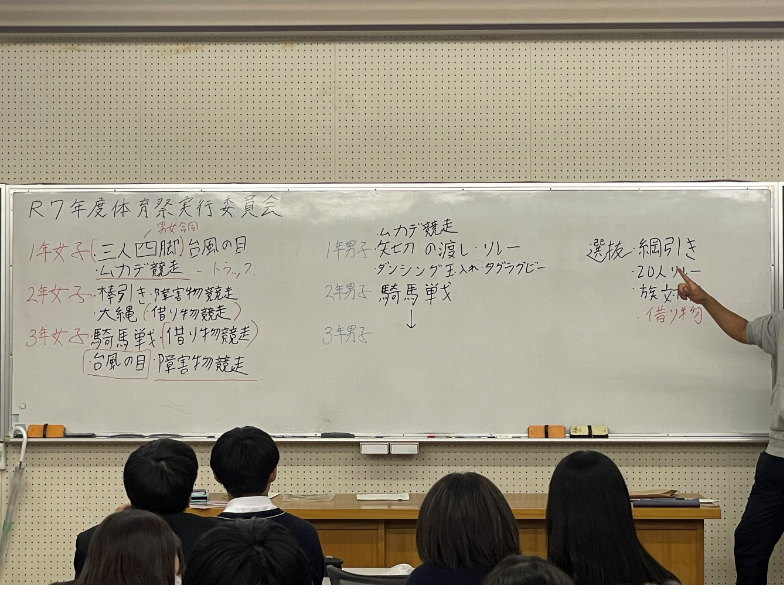 R7年度体育祭実行委員会
男女合同
1年女子(・三人四脚)台風の目
・ムカデ競走 - トラック.
2年女子・棒引き・障害物競走
大縄(借り物競走)
3年女子・騎馬戦・(借り物競走)
・台風の目・障害物競走
・ムカデ競走
1年男子・矢切の渡し・リレー
・ダンシング玉入れ・タグラグビー
2年男子 騎馬戦
↓
3年男子
選抜・綱引き
・20人リレー
・族対
・借り物